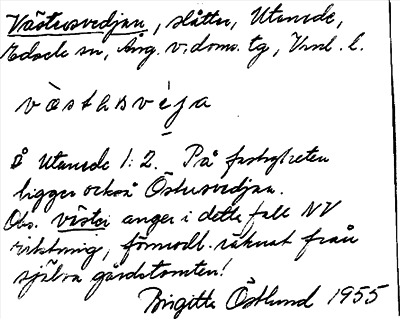 Västersvedjan, slåtter, Utanede,
Edsele sn, Ång. v. doms. tg, Vnl. l.
vàstasvéja
Å Utanede 1:2. På fastigheten
ligger också Östersvedjan.
Obs. väster anger i detta fall NV
riktning, förmodl. räknat från
själva gårdstomten!
Birgitta Östlund 1955